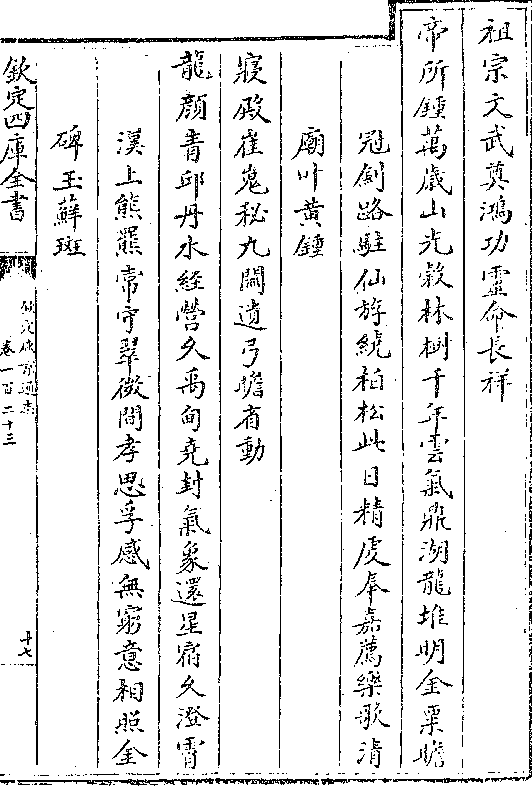 祖宗文武奠鴻功靈命長祥
帝所鍾萬歳山光榖林樹千年雲氣鼎湖龍堆明金粟瞻
冠劍路駐仙斿繞柏松此日精䖍奉嘉薦樂歌清
廟叶黄鍾
寢殿崔嵬秘九闗遺弓瞻省動
龍顔青邱丹水經營久禹甸堯封氣象還星宿久澄霄
漢上熊羆常守翠微間孝思孚感無窮意相照金
碑玉蘚斑
欽定四庫全書
卷一百二十三
十七